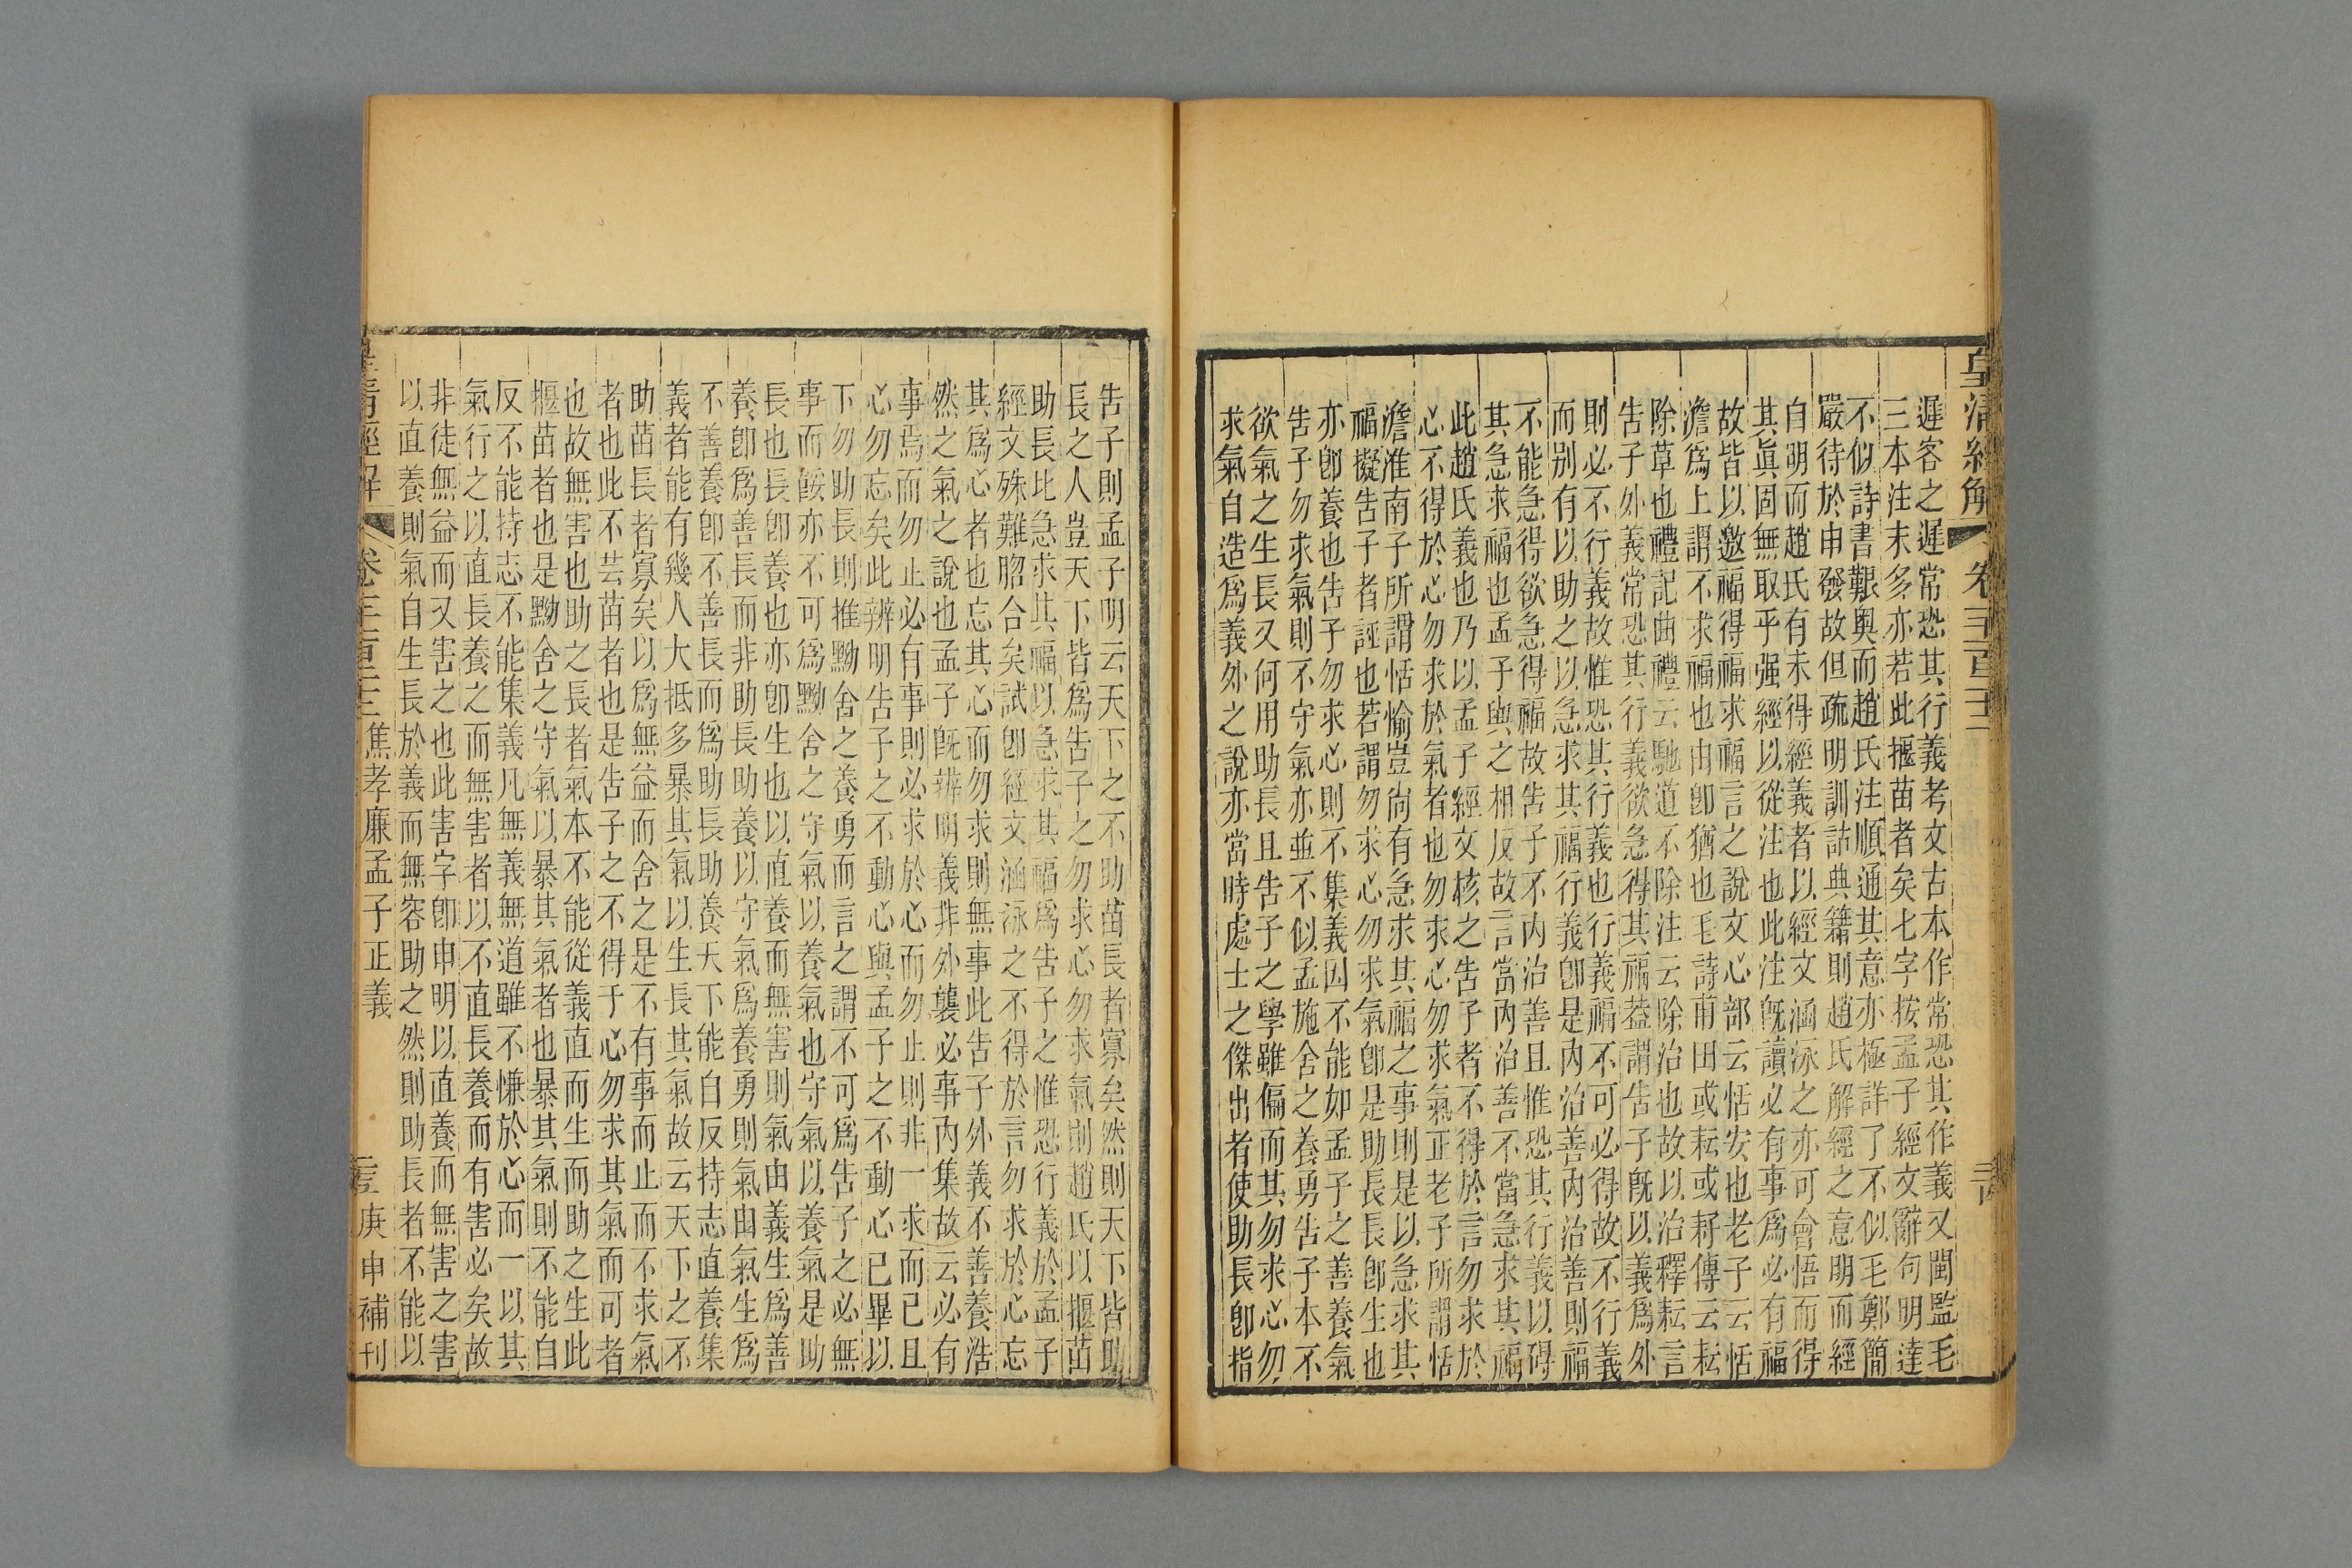 皇清經解 卷三百二十二
遲客之遲常恐其行義考文古本作常恐其作義又閩監毛
三本注末多亦若此揠苗者矣七字按孟子經文辭句明達
不似詩書艱奧而趙氏注順通其意亦極詳了不似毛鄭簡
嚴待於申發故但疏明訓詁典籍則趙氏解經之意明而經
自明而趙氏有未得經義者以經文涵泳之亦可會悟而得
其眞固無取乎强經以從注也此注旣讀必有事爲必有福
故皆以邀福得福求福言之說文心部云恬安也老子云恬
澹爲上謂不求福也由卽猶也毛詩甫田或耘或耔傳云耘
除草也禮記曲禮云馳道不除注云除治也故以治釋耘言
告子外義常恐其行義欲急得其福葢謂告子旣以義爲外
則必不行義故惟恐其行義也行義福不可必得故不行義
而别有以助之以急求其福行義卽是內治善內治善則福
不能急得欲急得福故告子不內治善且惟恐其行義以碍
其急求福也孟子與之相反故言當內治善不當急求其福
此趙氏義也乃以孟子經文核之告子者不得於言勿求於
心不得於心勿求於氣者也勿求心勿求氣正老子所謂恬
澹淮南子所謂恬愉豈尙有急求其福之事則是以急求其
福擬告子者誣也若謂勿求心勿求氣卽是助長長卽生也
亦卽養也告子勿求心則不集義因不能如孟子之善養氣
告子勿求氣則不守氣亦並不似孟施舍之養勇告子本不
欲氣之生長又何用助長且告子之學雖偏而其勿求心勿
求氣自造爲義外之說亦當時處士之傑出者使助長卽指
告子則孟子明云天下之不助苗長者寡矣然則天下皆助
長之人豈天下皆爲告子之勿求心勿求氣則趙氏以揠苗
助長比急求其福以急求其福爲告子之惟恐行義於孟子
經文殊難脗合矣試卽經文涵泳之不得於言勿求於心忘
其爲心者也忘其心而勿求則無事此告子外義不善養浩
然之氣之說也孟子旣辨明義非外襲必事內集故云必有
事焉而勿止必有事則必求於心而勿止則非一求而已且
心勿忘矣此辨明告子之不動心與孟子之不動心已畢以
下勿助長則推黝舍之養勇而言之謂不可爲告子之必無
事而餒亦不可爲黝舍之守氣以養氣也守氣以養氣是助
長也長卽養也亦卽生也以直養而無害則氣由義生爲善
養卽爲善長而非助長助養以守氣爲養勇則氣由氣生爲
不善養卽不善長而爲助長助養天下能自反持志直養集
義者能有幾人大抵多暴其氣以生長其氣故云天下之不
助苗長者寡矣以爲無益而舍之是不有事而止而不求氣
者也此不芸苗者也是告子之不得于心勿求其氣而可者
也故無害也助之長者氣本不能從義直而生而助之生此
揠苗者也是黝舍之守氣以暴其氣者也暴其氣則不能自
反不能持志不能集義凡無義無道雖不慊於心而一以其
氣行之以直長養之而無害者以不直長養而有害必矣故
非徒無益而又害之也此害字卽申明以直養而無害之害
以直養則氣自生長於義而無容助之然則助長者不能以
皇清經解 卷三百二十二 焦孝廉孟子正義 庚申補刊